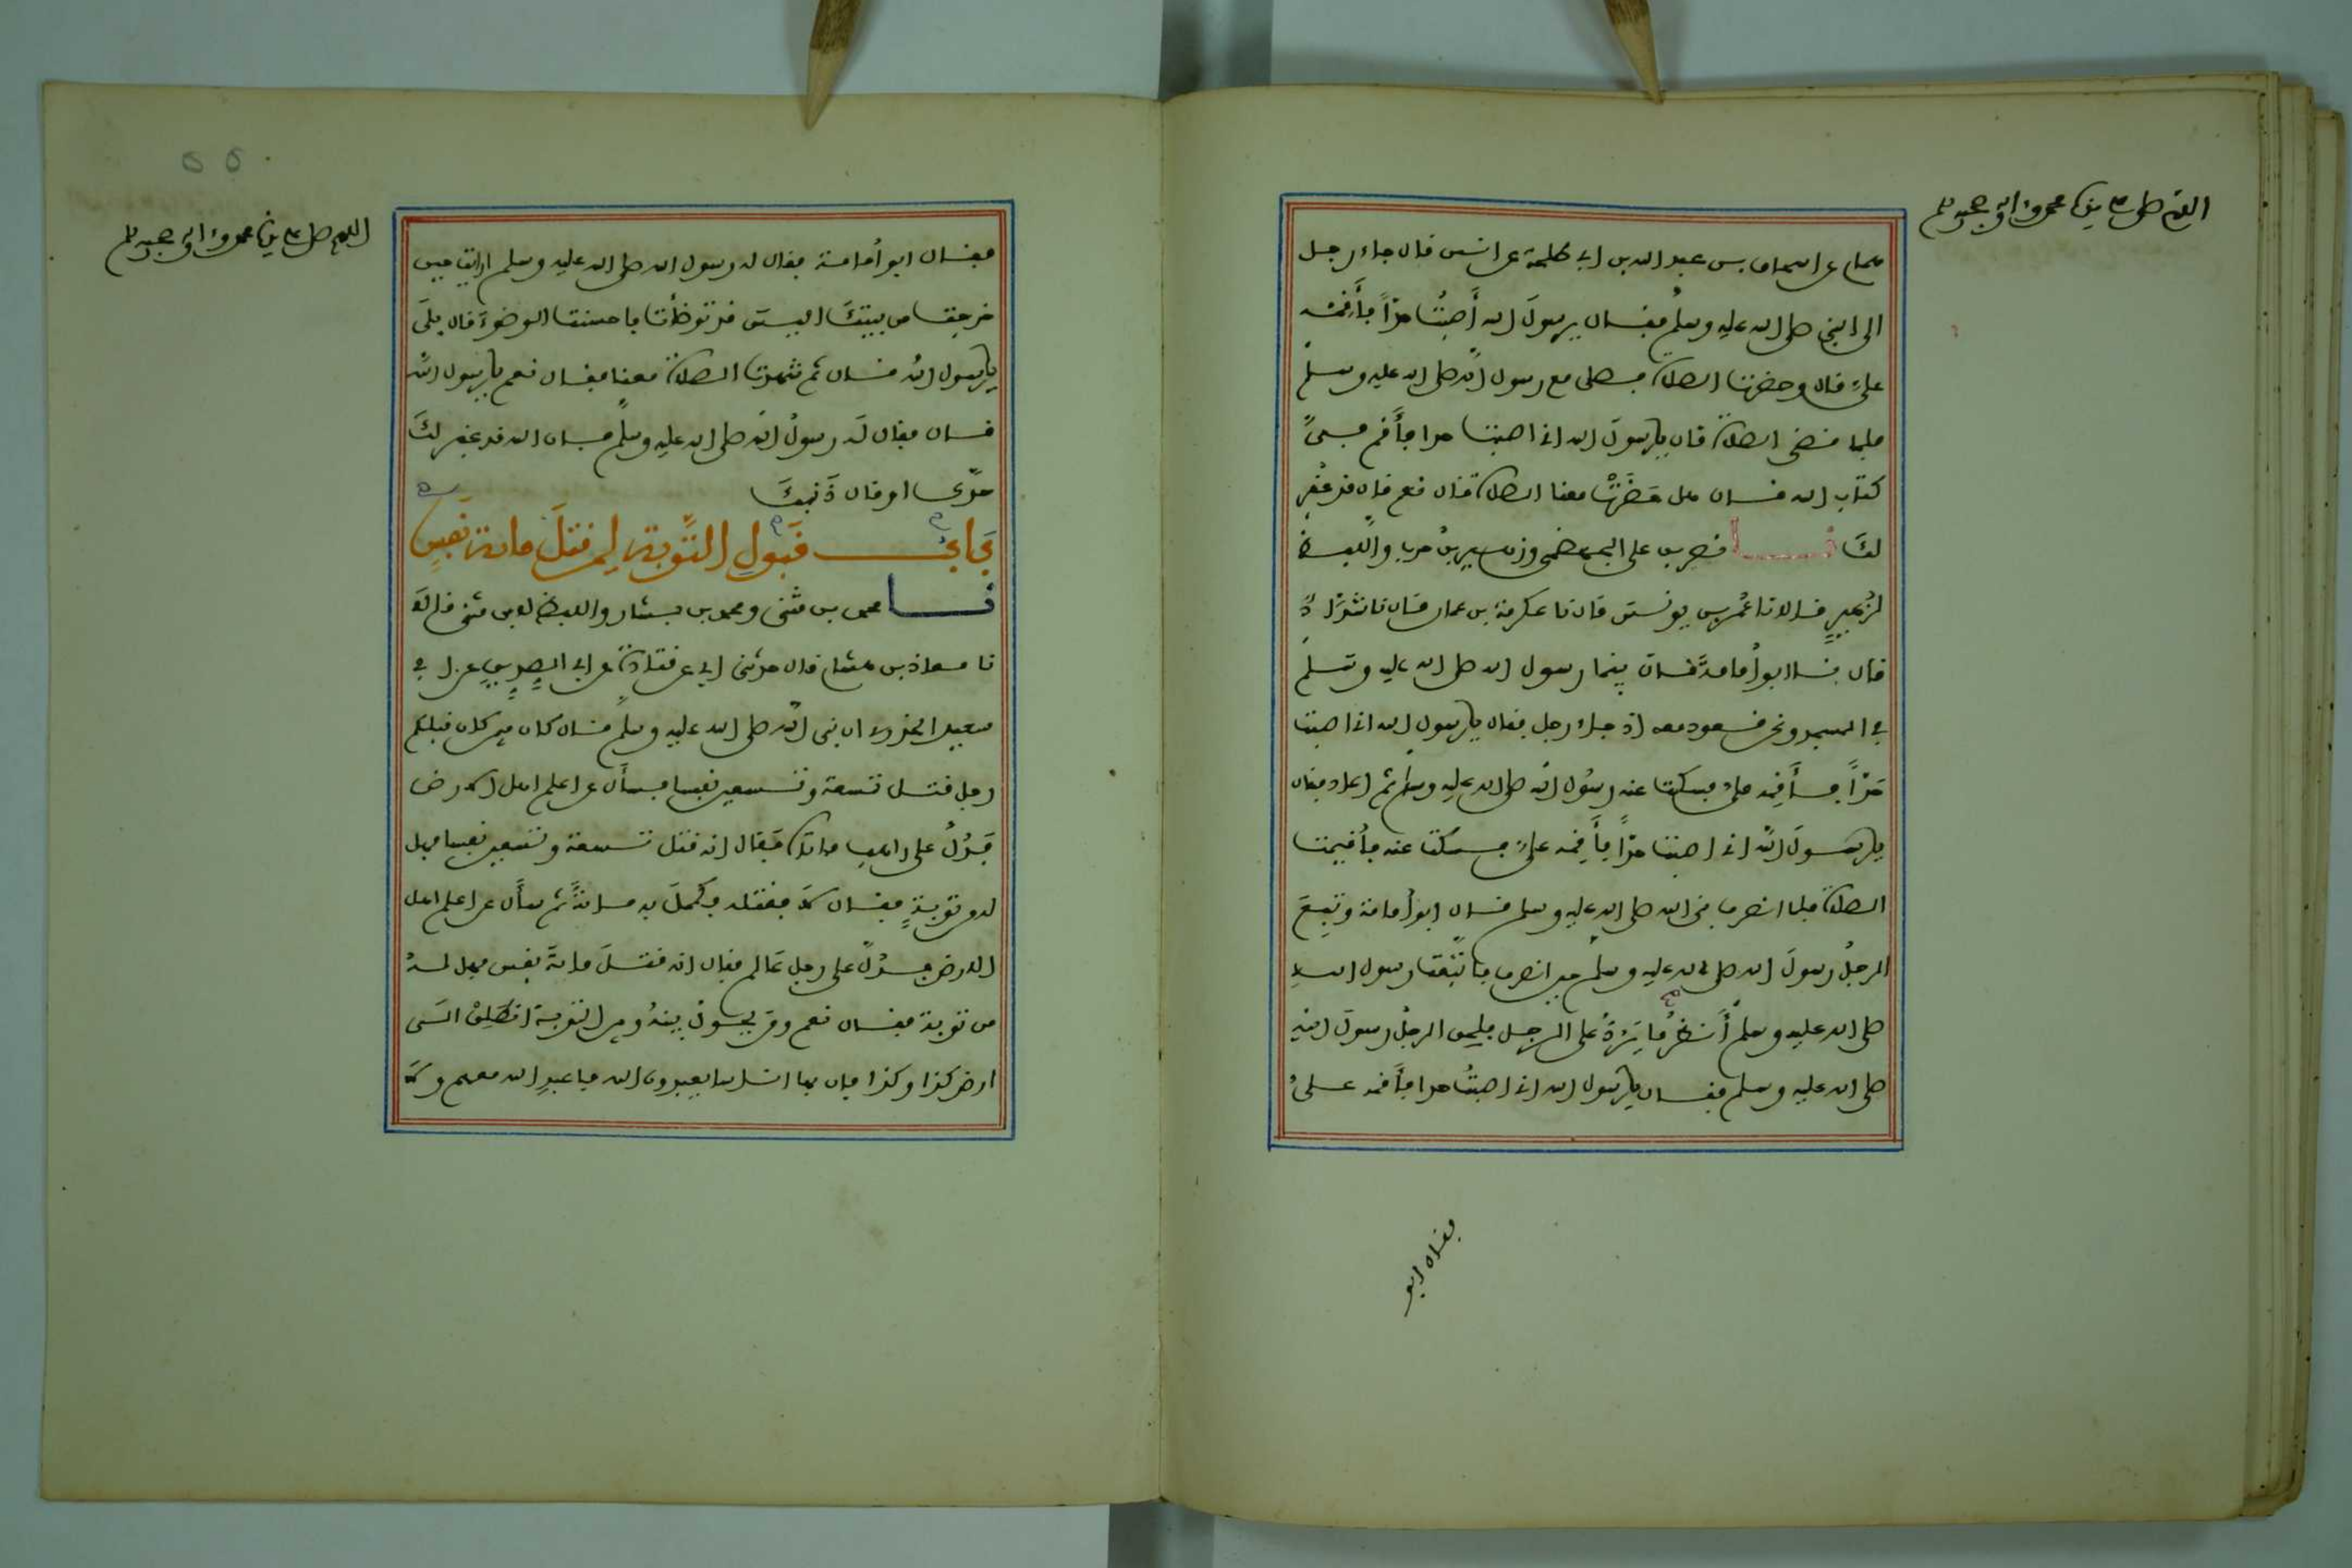 اللهم صل على سيدنا محمد وآله وصحبه وسلم
همام عن اسحاق بن عبد الله بن ابي طلحة عن انس قال جاء رجل
الى النبي صلى الله عليه وسلم فقال يرسولَ الله أَصبتُ حدّاً فأَقمْه
عليَّ قال وحضرت الصلاة فصلى مع رسول الله صلى الله عليه وسلم
فلما قضى الصلاة قال يا رسولَ الله اني اصبت حدا فأَقم فيَّ
كتاب الله قال هل حَضَرْتَ معنا الصلاة قال نعم قال قد غُفِر
لكَ نا نصر بن علي الجهضمي وزهير بنُ حرب واللفظ
لزُهيرٍ قالا نا عُمر بن يونس قال نا عكرمة بن عمار قال نا شدَّادٌ
قال نا ابو أُمامة قال بينما رسول الله صلى الله عليه وسلم
في المسجد ونحن قعود معه اذ جاء رجل فقال يا رسول الله اني اصبت
حَدّاً فأَقِمه عليَّ فسكت عنه رسُول الله صلى الله عليه وسلم ثم اعاد فقال
يا رسولَ الله اني اصبت حدّاً فأَقِمه عليَّ فسكت عنه فأُقيمت
الصلاة فلما انصرف نبي الله صلى الله عليه وسلم قال ابو أُمامة وتبِعَ
الرجلُ رسولَ الله صلى الله عليه وسلم حين انصرف فاتَّبَعْتُ رسول الله
صلى الله عليه وسلم أَنظرُ ما يَرُدُّ على الرجل فلحق الرجلُ رسولَ الله
صلى الله عليه وسلم فقال يا رسول الله اني اصبتُ حدا فأَقمه عليَّ
فقال ابو
اللهم صل على سيدنا محمد وآله وصحبه وسلم
55
فقال ابو أُمامة فقال له رسول الله صلى الله عليه وسلم ارايت حين
خرجت من بيتكَ اليس قد توضأْتَ فاحسنت الوضوءَ قال بلَى
يا رسول الله قال ثم شهدت الصلاة معنا فقال نعم يا رسول الله
قال فقال لَه رسولُ الله صلى الله عليه وسلم فان الله قد غفر لكَ
حدَّك او قال ذَنبكَ
بَابُ قَبُولِ التَّوبةِ لِمن قتلَ مائة نفسٍ
نا محمد بن مثنى ومحمد بن بشار واللفظ لابن مثنى قالا
نا معاذ بن هشام قال حدثني ابي عن قتادة عن ابي الصديق عن ابي
سعيد الخدري ان نبي الله صلى الله عليه وسلم قال كان فيمن كان قبلكم
رجل قتل تسعة وتسعين نفسا فسأَل عن اعلم اهل الارض
فَدُلَّ على راهب فاتاه فَقال انه قتل تسعة وتسعين نفسا فهل
له من توبةٍ فقال لا فقتله فكمَّلَ به مائةً ثم سأَل عن اعلم اهل
الارض فدُلَّ على رجل عَالم فقال انه قتلَ مائةَ نفس فهل لهُ
من توبة فقال نعم ومن يحول بينهُ وبين التوبة انطَلِقْ الى
ارض كذا وكذا فان بها اناسا يعبدون الله فاعبدِ الله معهم ولا